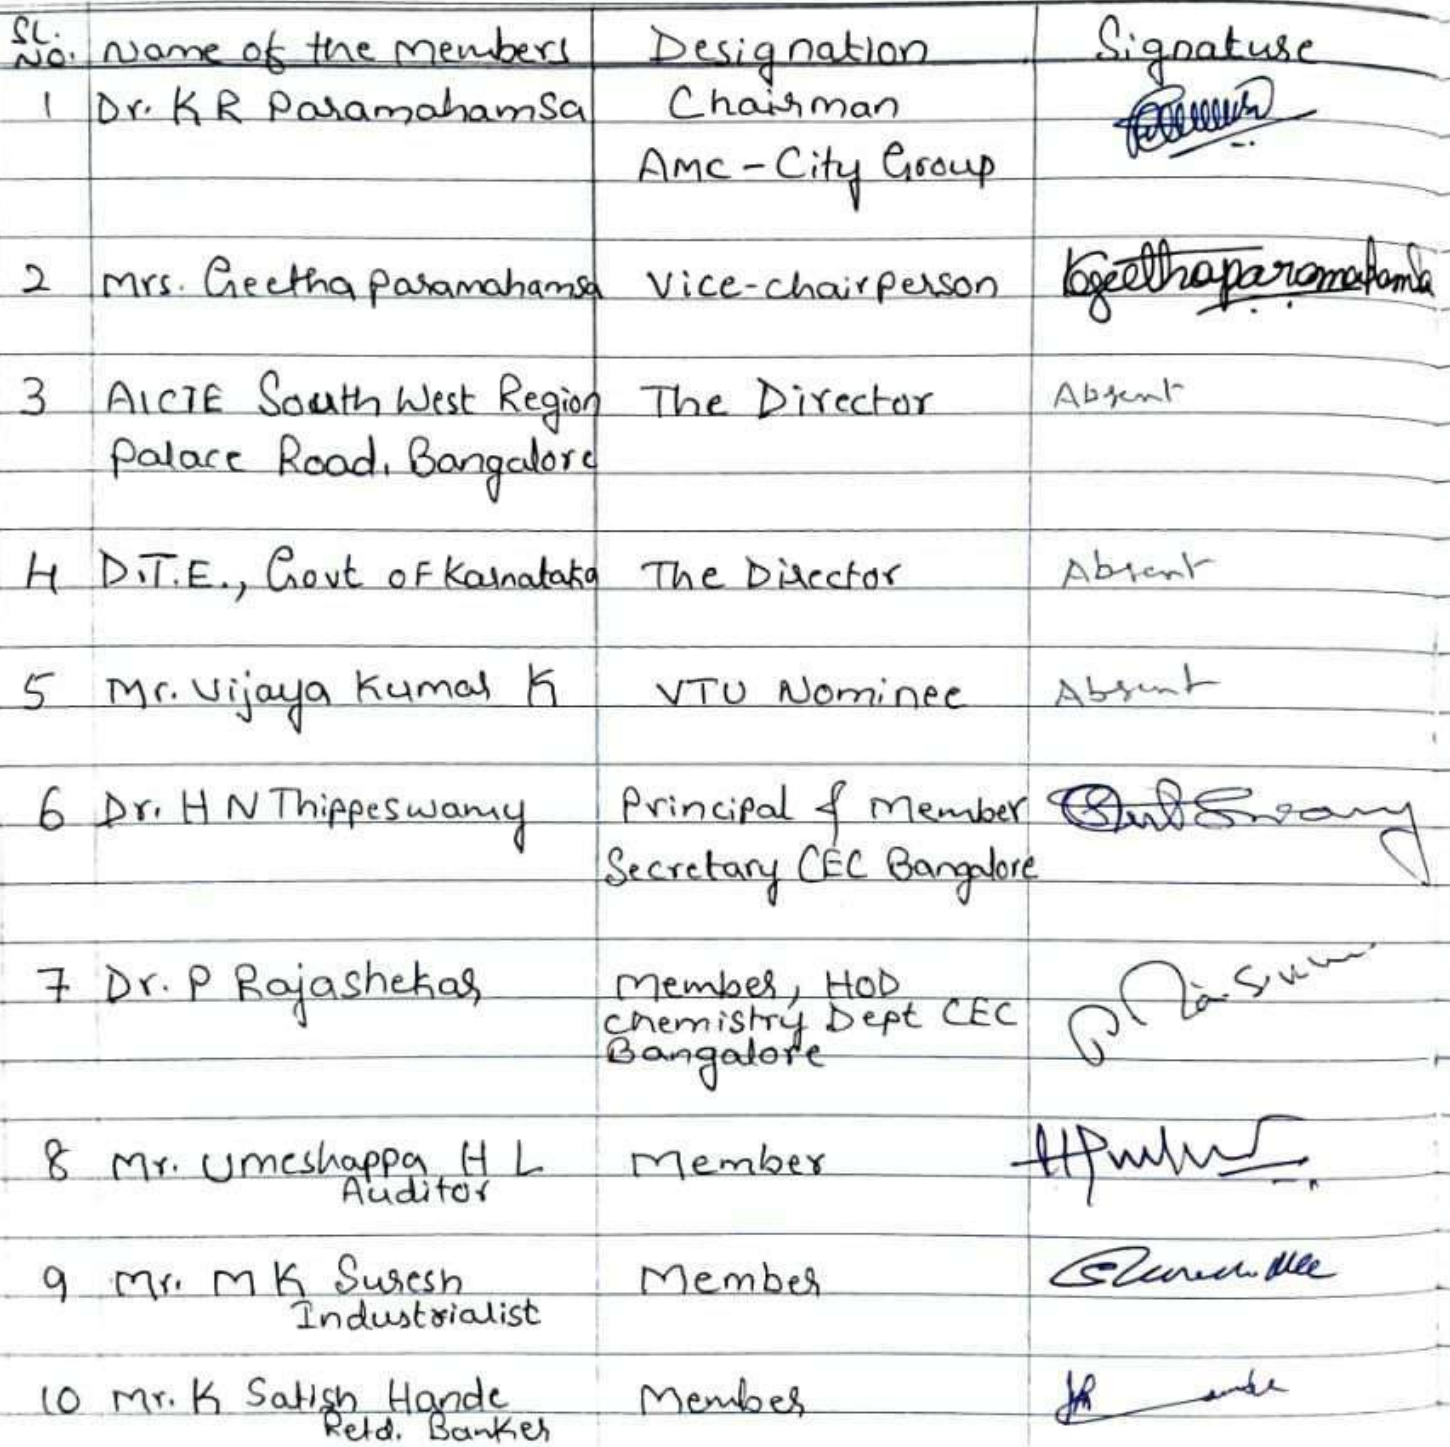 SL. NO. Name of the Members Designation Signature
1 Dr. K R Paramahamsa Chairman
AMC - City Group
2 Mrs. Geetha Paramahamsa Vice-chairperson Kgeethaparamahamsa
3 AICTE South West Region The Director Absent
Palace Road, Bangalore
4 D.T.E., Govt of Karnataka The Director Absent
5 Mr. Vijaya Kumar K VTU Nominee Absent
6 Dr. H N Thippeswamy Principal & Member
Secretary CEC Bangalore
7 Dr. P Rajashekar Member, HOD
Chemistry Dept CEC
Bangalore
8 Mr. Umeshappa H L Member
Auditor
9 Mr. M K Suresh Member
Industrialist
10 Mr. K Satish Hande Member
Retd. Banker